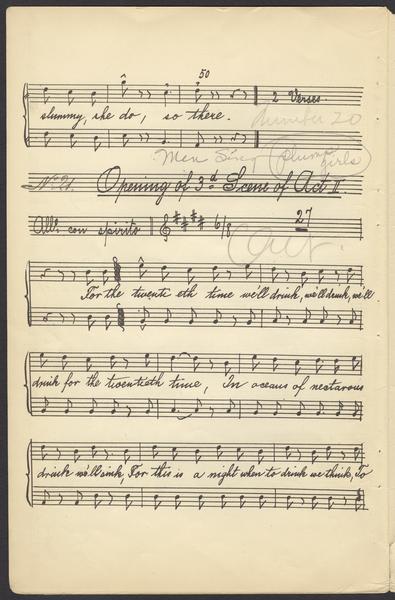 50
2 Verses.
slummy, she do, so there.
number 20
Men Sing
girls
No 21. Opening of 3d Scene of Act II
Allo. con spirito 6/8 27
Cut.
For the twenti eth time we'll drink, we'll drink, we'll
drink for the twentieth time, In oceans of nectarous
drink we'll sink, For this is a night when to drink we think, To